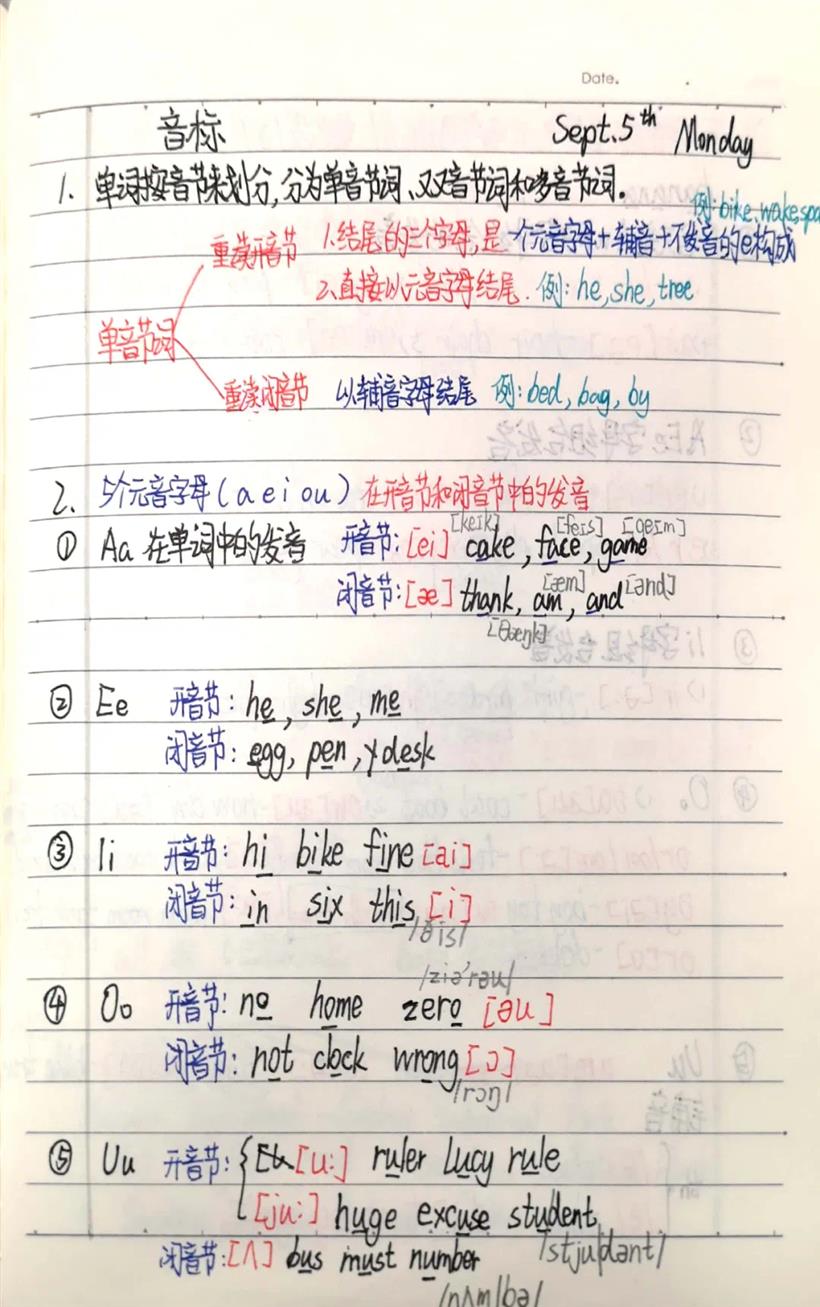 Date.
音标 Sept.5th Monday
1. 单词按音节来划分,分为单音节词、双音节词和多音节词。
例:bike、wake、spa
重读开音节 1.结尾的三个字母,是一个元音字母+辅音+不发音的e构成
2.直接以元音字母结尾. 例:he,she,tree
单音节词
重读闭音节 以辅音字母结尾 例:bed,bag,by
2. 5个元音字母(a e i o u)在开音节和闭音节中的发音
[keɪk] [feɪs] [geɪm]
① Aa 在单词中的发音 开音节:[ei] cake,face,game
闭音节:[æ] thank, am, and [æm] [ənd]
[θæŋk]
② Ee 开音节: he, she, me
闭音节: egg, pen, desk
③ Ii 开音节: hi bike fine [ai]
闭音节: in six this [i]
/ðis/
/ziə'rəu/
④ Oo 开音节: no home zero [əu]
闭音节: not clock wrong [ɔ]
/rɔŋ/
⑤ Uu 开音节: [u:] ruler Lucy rule
[ju:] huge excuse student
闭音节:[ʌ] bus must number /stju|dənt/
/nʌm|bə/